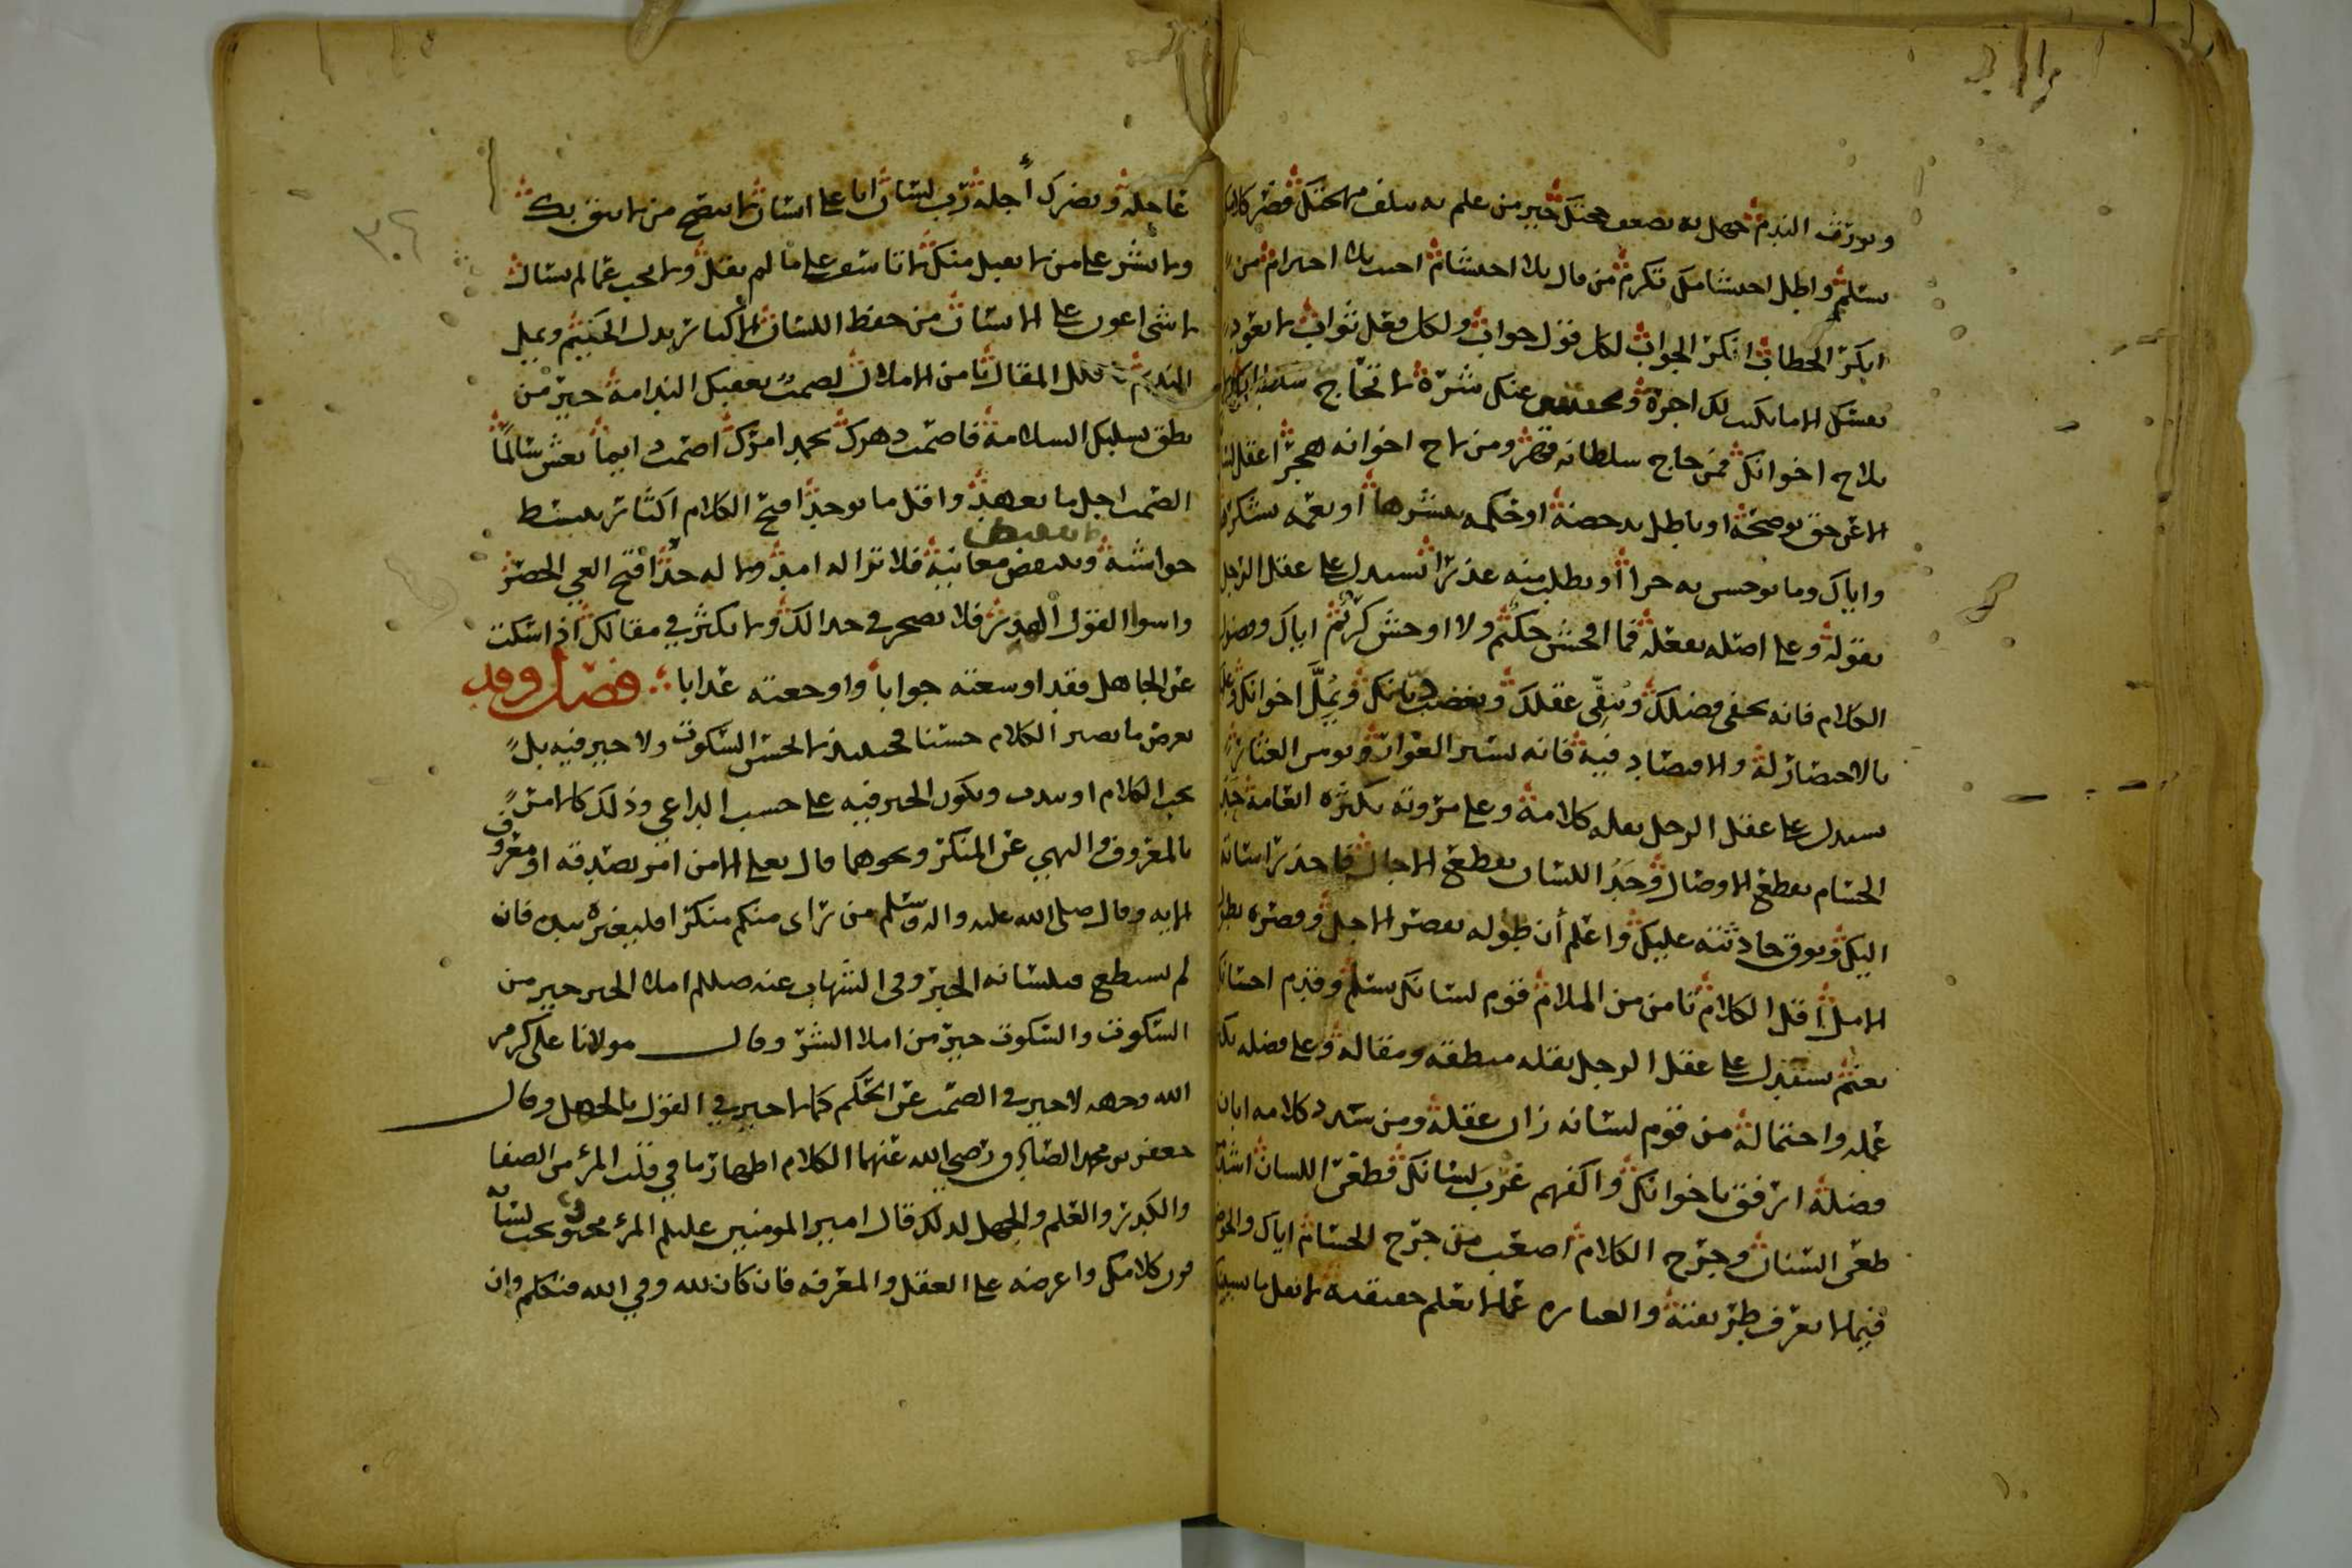 ويورث الندم جهل به يضعف حجتك خير من علم به يتلف مهجتك قصر كلامك
تسلم واطل احتشامك تكرم من قال بلا احتشام اجيب بلا احترام من
انكر الخطاب انكر الجواب لكل قول جواب ولكل فعل ثواب لا تعود
نفسك الا ما يكتب لك اجره عنك شره لا تحاج سلطانك
تلاح اخوانك فمن حاج سلطانه قهر ومن لاح اخوانه هجر اعقل
الا عن حق توضحه او باطل تدحضه او حكمة تنشرها او نعمة تشكرها
واياك وما توحش به حرا او تطلب منه عذرا تستدل على عقل الرجل
بقوله وعلى اصله بفعله فما افحش حكيم ولا اوحش كريم اياك وفضول
الكلام فانه يخفي فضلك وينقي عقلك ويغضب ويمل اخوانك
بالاختصار له والاقتصاد فيه فانه يستر العوار ويومن العثار
يستدل على عقل الرجل بقلة كلامه وعلى مروته بكثرة انعامه حد
الحسام يقطع الاوصال وحد اللسان يقطع الاجال فاحذر
اليك وتوق حادثته عليك واعلم أن طوله يقصر الاجل وقصره
الامل اقل الكلام تامن من الملام قوم لسانك تسلم وقدم احسانك
تغنم يستدل على عقل الرجل بقلة منطقه ومقاله وعلى فضله
عمله واحتماله من قوم لسانه زان عقله ومن سدد كلامه ابان
فضله ارفق باخوانك واكفهم غرب لسانك فطعن اللسان اشد من
طعن السنان وجرح الكلام اصعب من جرح الحسام اياك والخوض
فيما لا تعرف طريقته والعبارة عما لا تعلم حقيقته لا تقل ما
عاجله ويضرك أجله رب لسان اتا على انسان لا تنصح من لا يثق بك
ولا تشر على من لا يقبل منك لا تاسف على ما لم تقل ولا تجب عما لم تسال
لا شي اعون على الانسان من حفظ اللسان الاكثار يزل الحكيم ويمل
النديم قلل المقال تامن الاملال لصمت يعقبك الندامة خير من
نطق يسلبك السلامة فاصمت دهرك تحمد امرك اصمت دايما تعش سالما
الصمت اجل ما تعهد واقل ما توجد اقبح الكلام اكثار تنبسط
حواشيه وتنقبض معانيه فلا ترا له امد ولا له حد اقبح العي الحصر
واسوا القول الهذر فلا تضجر في جدالك ولا تكثر في مقالك اذا سكت
عن الجاهل فقد اوسعته جوابا واوجعته عذابا فصل وقد
يعرض ما يصير الكلام حسنا فحينئذ لا يحسن السكوت ولا خير فيه بل
يجب الكلام او يندب ويكون الخير فيه على حسب الداعي وذلك كالامر
بالمعروف والنهي عن المنكر ونحوهما قال تعلى الا من امر بصدقة او معروف
الايه وقال صلى الله عليه واله وسلم من راى منكم منكرا فليغيره بيده فان
لم يستطع فبلسانه الخبر وفي الشهاب عنه صللم املا الخير خير من
السكوت والسكوت خير من املا الشر وقال مولانا علي كرم
الله وجهه لا خير في الصمت عن الحكم كما لا خير في القول بالجهل وقال
جعفر بن محمد الصادق رضي الله عنهما الكلام اظهار ما في قلب المرء من الصفا
والكدر والعلم والجهل لذلك قال امير المومنين عليلم المرء مخبو تحت لسانه
فزن كلامك واعرضه على العقل والمعرفة فان كان لله وفي الله فتكلم وان